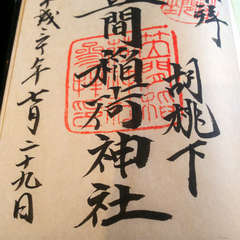 拝
胡桃下
間稲荷神社
平成二十年七月二十九日